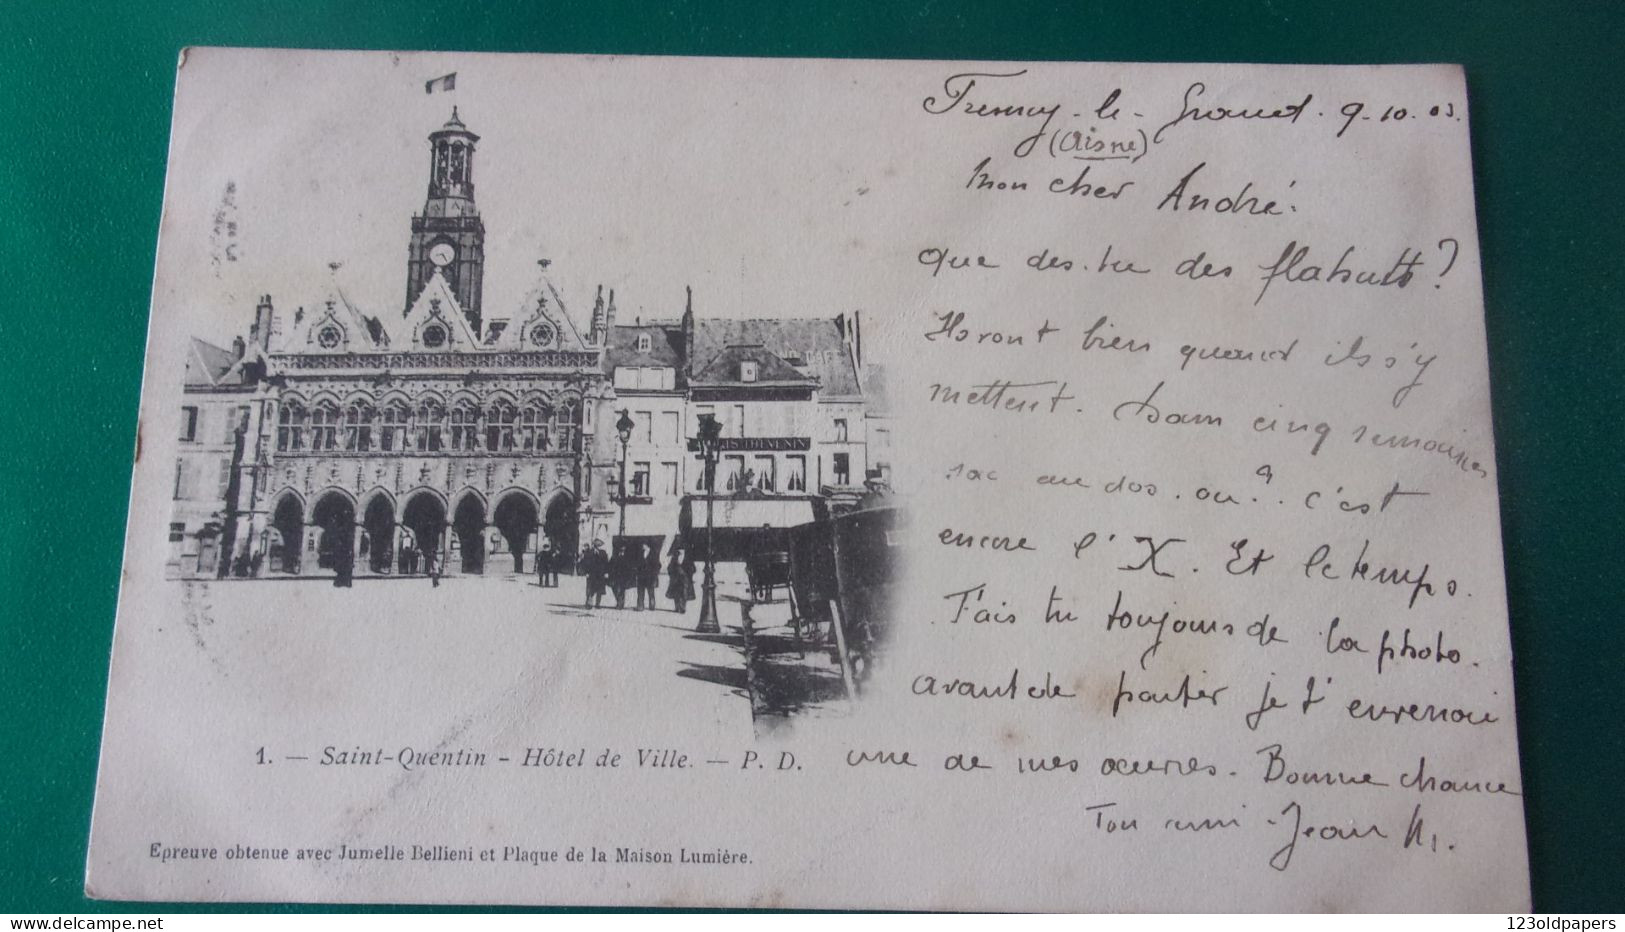 Fresnoy-le-Grand. 9-10.03.
(Aisne)
Mon cher André.
que des-tu des
?
Ils vont bien quand ils s'y
mettent. Dans cinq semaines
sac au dos. où?. C'est
encore l'X. Et le temps.
Fais tu toujours de la photo.
avant de partir je t'enverrai
une de mes œuvres. Bonne chance
Ton ami. Jean
THEVENIN
1. — Saint-Quentin - Hôtel de Ville. — P. D.
Epreuve obtenue avec Jumelle Bellieni et Plaque de la Maison Lumière.
123oldpapers